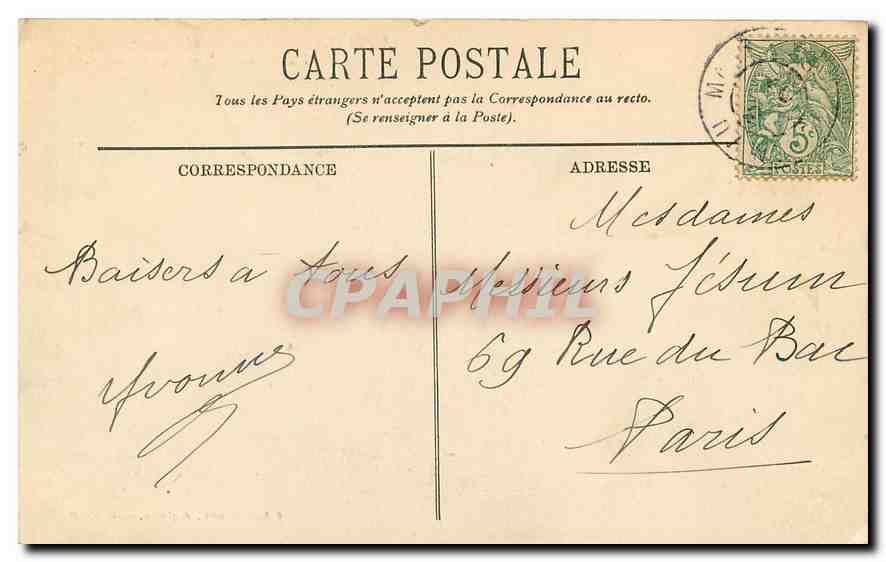 CARTE POSTALE
Tous les Pays étrangers n'acceptent pas la Correspondance au recto.
(Se renseigner à la Poste).
CORRESPONDANCE
Baisers à tous
Yvonne
ADRESSE
5c
POSTES
Mesdames
Messieurs Jésum
69 Rue du Bac
Paris
CPAPHIL